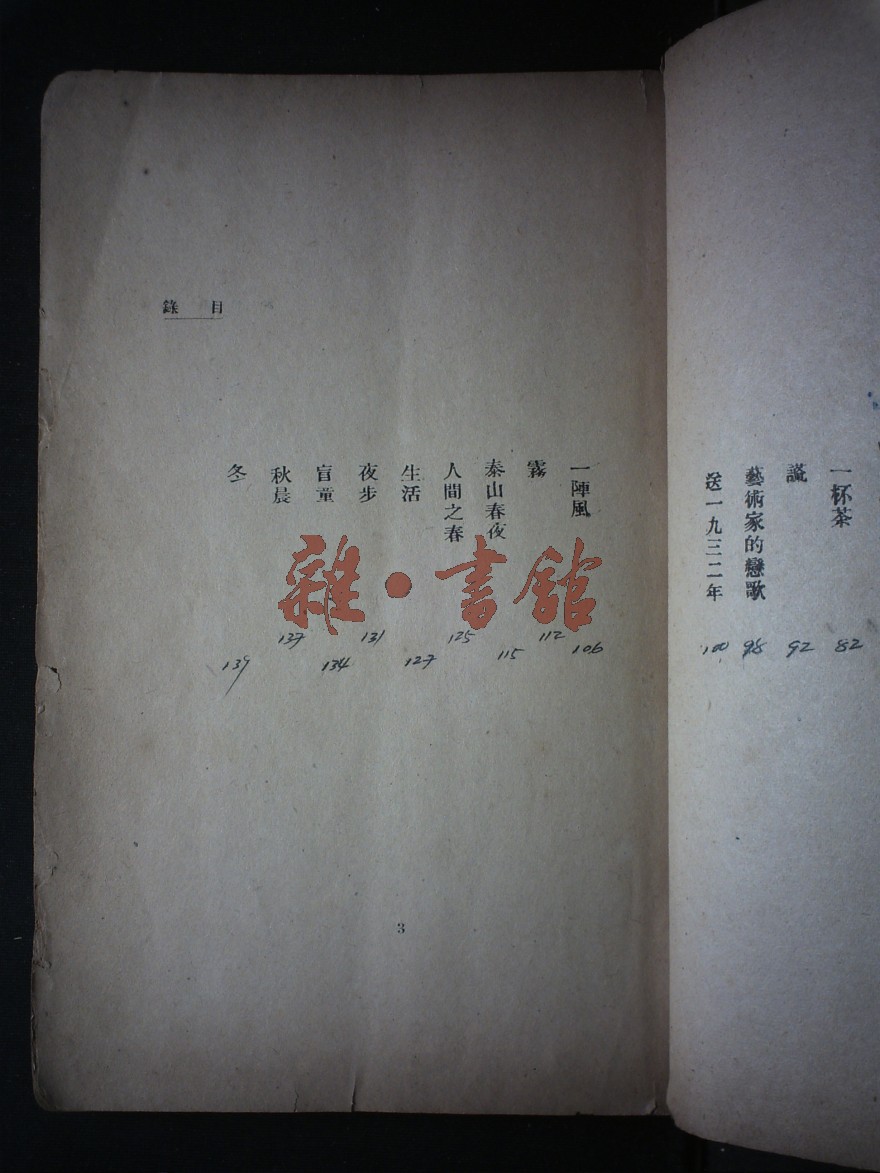 一杯茶
82
謊
92
藝術家的戀歌
98
送一九三二年
100
目錄
一陣風
106
霧
112
泰山春夜
115
人間之春
125
生活
127
夜步
131
盲童
134
秋晨
137
冬
139
雜·書館
3